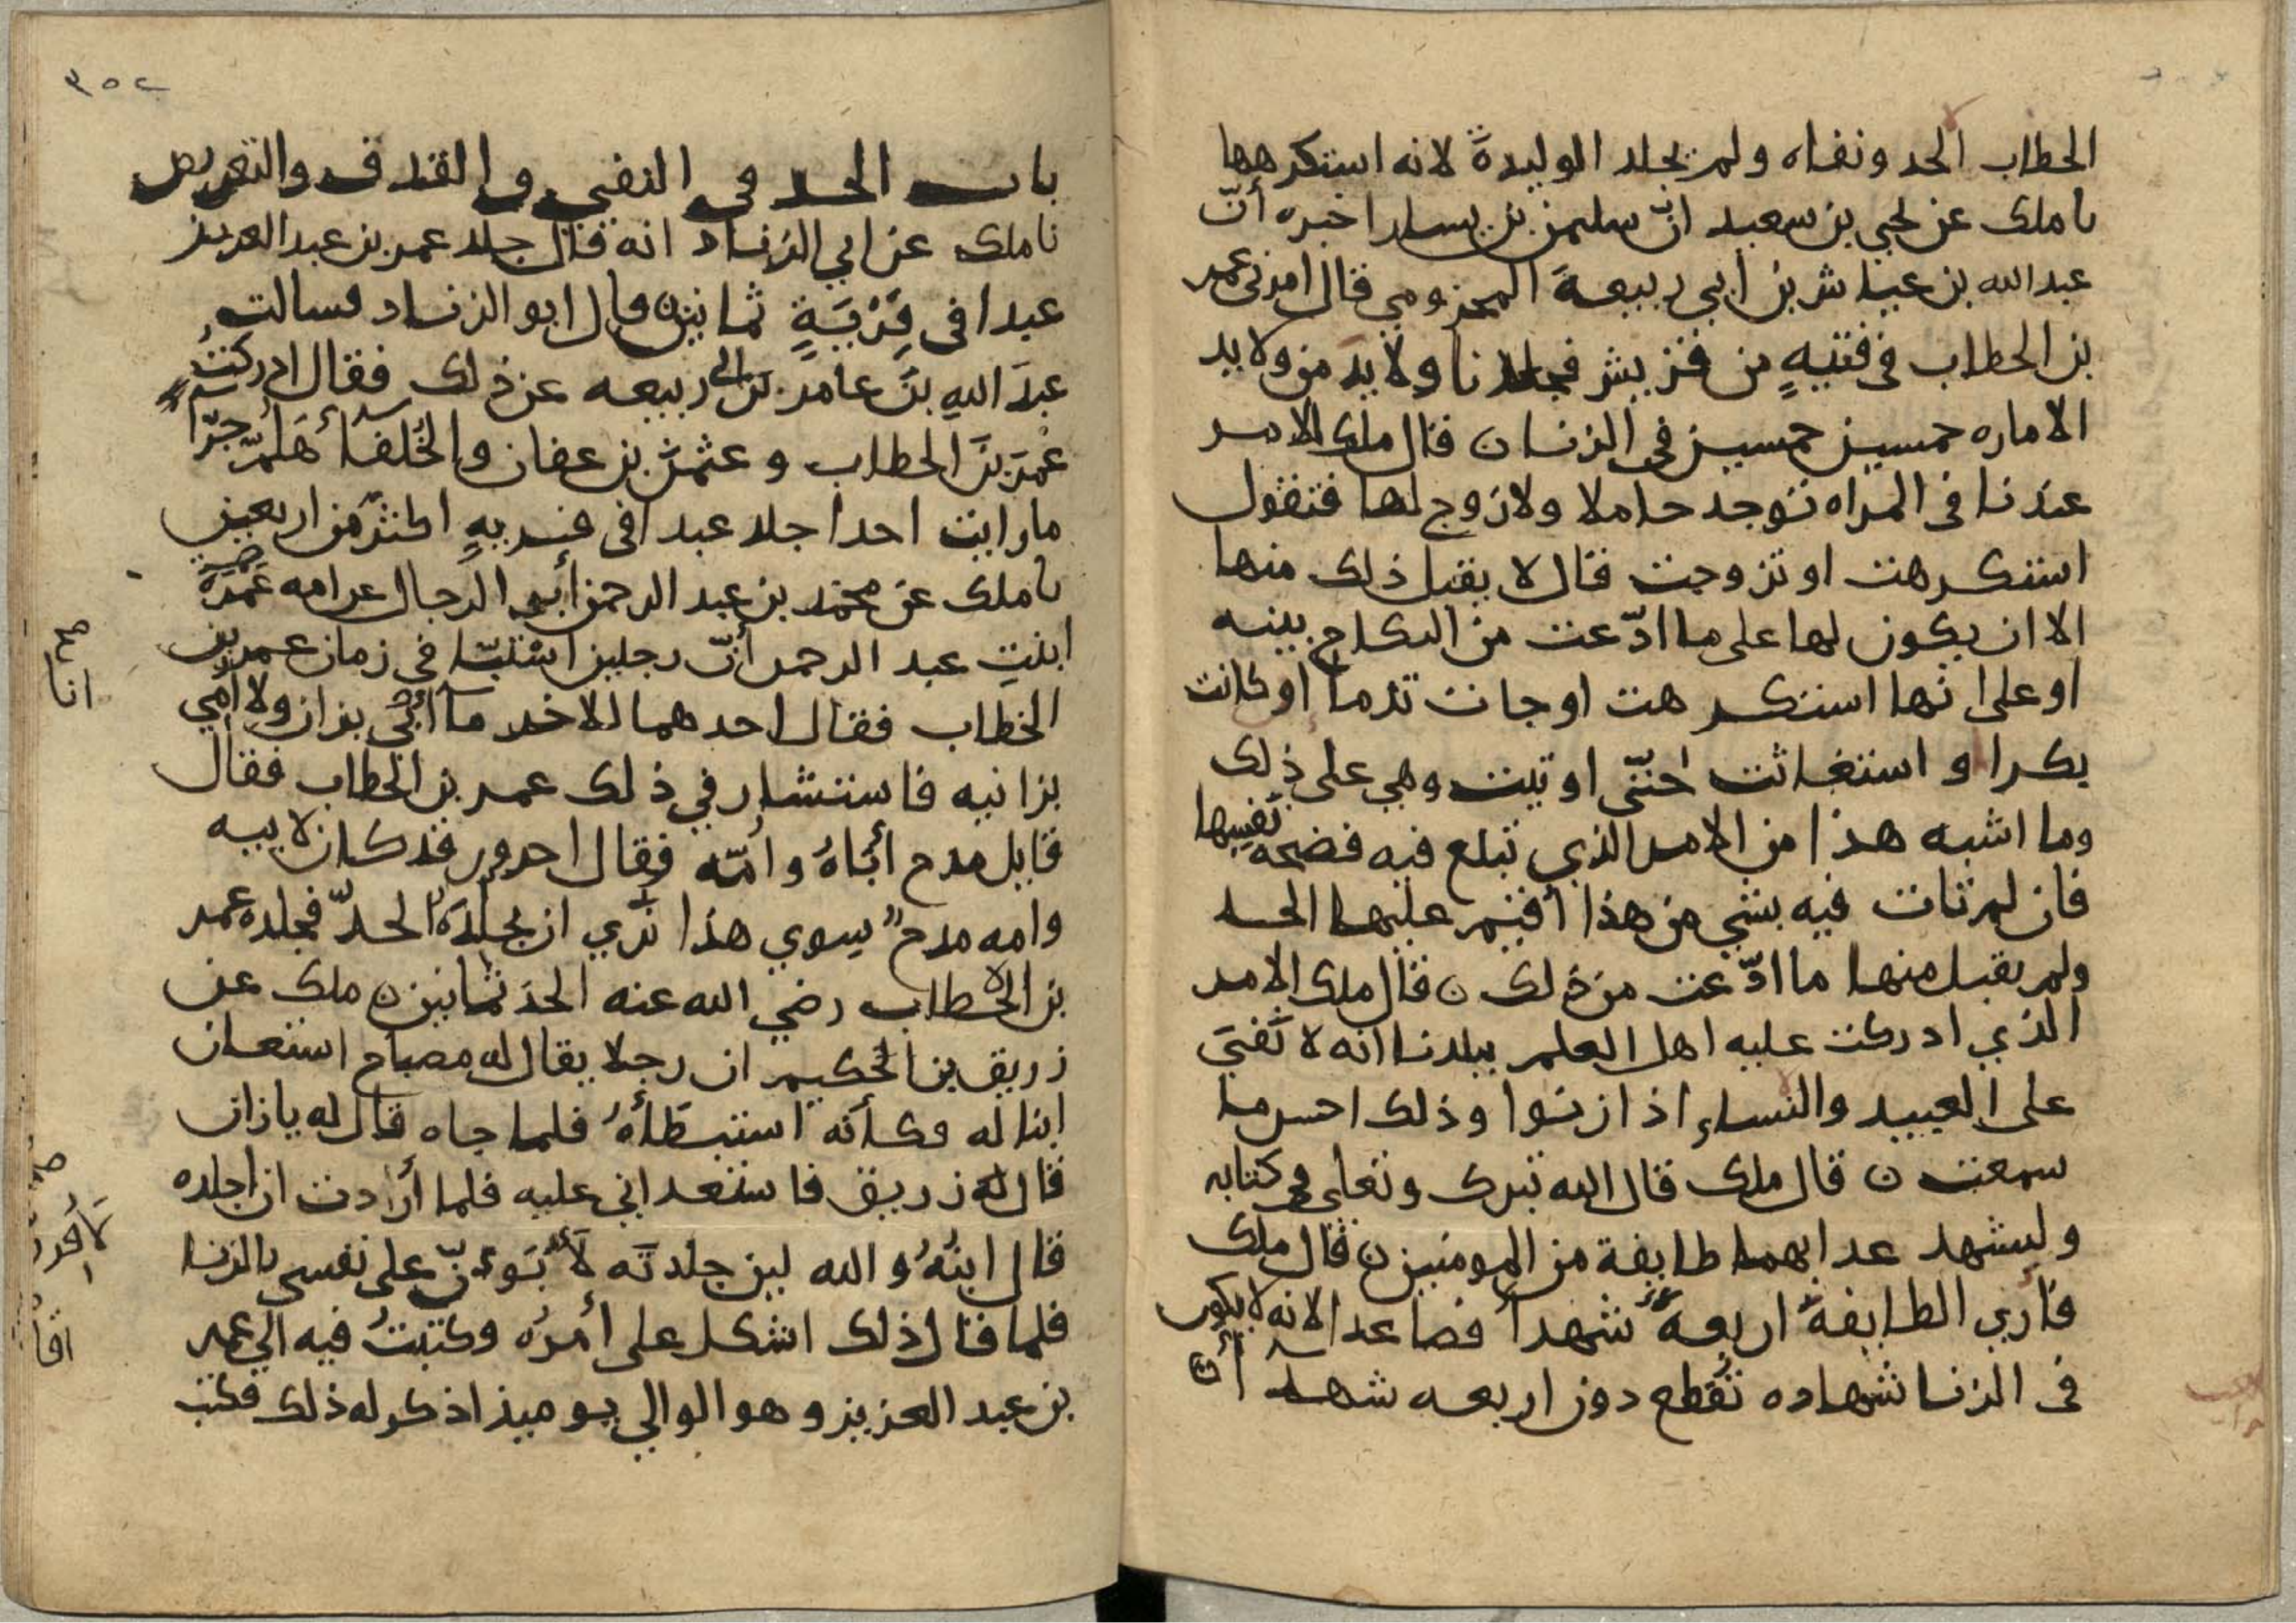 الخطاب الحد ونفاه ولم يجلد الوليدة لانه استكرهها
نا ملك عن يحيى بن سعيد ان سليمن بن يسار اخبره أنّ
عبد الله بن عياش بن أبي ربيعة المخزومي قال امرني عمر
بن الخطاب في فتيةٍ من قريش فجلدنا ولايد من ولايد
الاماره خمسين خمسين في الزنا ن قال ملك الامر
عندنا في المراه توجد حاملا ولا زوج لها فتقول
استكرهت او تزوجت قال لا يقبل ذلك منها
الا ان يكون لها على ما ادّعت من النكاح بينه
او على انها استكرهت او جات تدما او كانت
بكرا واستغاثت حتّى اوتيت وهي على ذلك
وما اشبه هذا من الامر الذي تبلغ فيه فضيحة نفسها
فان لم تات فيه بشي من هذا أقيم عليها الحد
ولم يقبل منها ما ادّعت من ذلك ن قال ملك الامر
الذي ادركت عليه اهل العلم ببلدنا انه لا نفي
على العبيد والنساء اذا زنوا وذلك احسن ما
سمعت ن قال ملك قال الله تبرك وتعلى في كتابه
وليشهد عدابهما طايفة من المومنين ن قال ملك
فأرى الطايفة اربعة شهدا فصاعدا لانه لا يكون
في الزنا شهاده تقطع دون اربعه شهدآ أ
٣٥٢
باب الحد في النفي والقذف والتعريض
نا ملك عن ابي الزناد انه قال جلد عمر بن عبد العزيز
عبدا في فِرْيَةٍ ثمانين قال ابو الزناد فسالت
عبدَ اللهِ بنَ عامر بن ربيعه عن ذلك فقال ادركتُ
عُمرَ بنَ الخطاب وعثمن بن عفان والخُلفآ هَلُمّ جَرّا
ما رايت احدا جلد عبدا في فريةٍ اكثر من اربعين
نا ملك عن محمد بن عبد الرحمن أبي الرجال عن امه عَمْرَةَ
ابنتِ عبد الرحمن أنّ رجلين استبّا في زمان عمر بن
الخطاب فقال احدهما للاخر ما أبي بزان ولا أمي
بزانيه فاستشار في ذلك عمر بن الخطاب فقال
قايل مدح أباهُ وأمّه فقال اخرون قد كان لابيه
وامه مدحٌ سوي هذا نَرَي ان تجلدَهُ الحدّ فجلده عمر
بن الخطاب رضي الله عنه الحد ثمانين ن ملك عن
زريق بن الحكيم ان رجلا يقال له مصباح استعان
ابنا له فكأنه استبطأهُ فلما جاه قال له يا زان
قال زريق فاستعداني عليه فلما أرادت ان اجلده
قال ابنُهُ والله لين جلدته لَأَبُوءنّ على نفسي بالزنا
فلما قال ذلك اشكل على أمرُه وكتبتُ فيه الى عمر
بن عبد العزيز وهو الوالي يوميذ اذكر له ذلك فكتب
انا